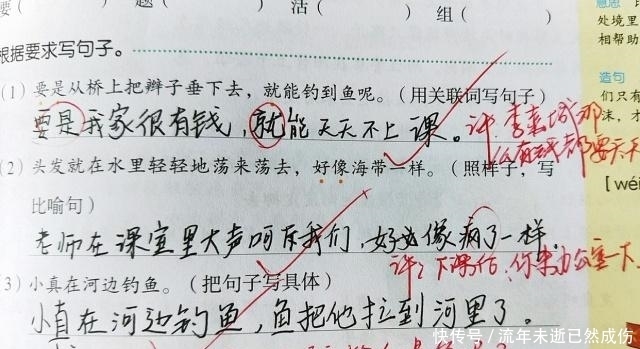 要（ ） 题（ ） 活（ ） 组（ ）
根据要求写句子。
（1）要是从桥上把辫子垂下去，就能钓到鱼呢。（用关联词写句子）
要是我家很有钱，就能天天不上课。
评：李嘉诚那
么有钱都要天天
（2）头发就在水里轻轻地荡来荡去，好像海带一样。（照样子，写
比喻句）
老师在课室里大声呵斥我们，好像病了一样。
评：下课后，你来办公室一下.
（3）小真在河边钓鱼。（把句子写具体）
小真在河边钓鱼，鱼把他拉到河里了。
处境里
相帮助
造句
们只有
沫，才
[wéi
快传号／流年未逝已然成伤